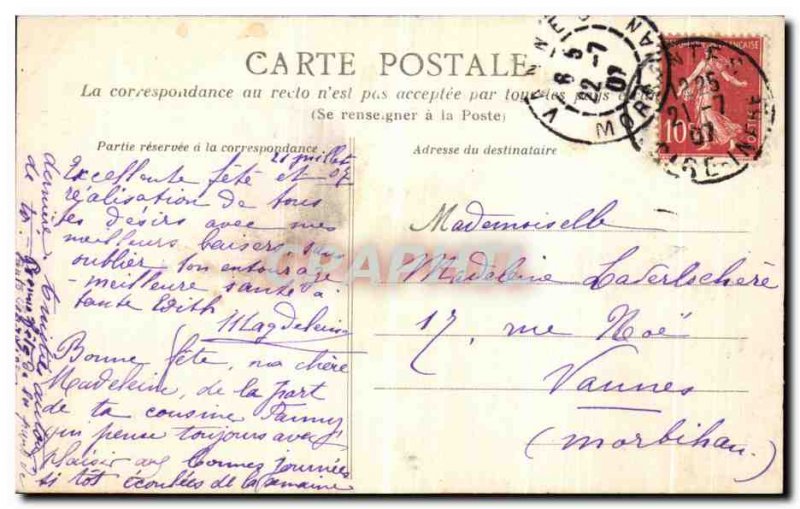 CARTE POSTALE
La correspondance au recto n'est pas acceptée par tous les pays
(Se renseigner à la Poste)
Partie réservée à la correspondance
Adresse du destinataire
21 juillet 07
Excellente fête et
réalisation de tous
tes désirs avec mes
meilleurs baisers sans
oublier ton entourage
meilleure santé à
tante Edith
Magdeleine
Bonne fête, ma chère
Madeleine, de la part
de ta cousine Fanny
qui pense toujours avec
plaisir aux bonnes journées
si tôt écoulées de la semaine
dernière
Mademoiselle
Madeleine
17, rue Noé
Vannes
(Morbihan)
VANNES
6 5
22 -7
07
MORBIHAN
NANTES
12 25
21 -7
07
LOIRE-INFRE
10
CARTE POSTALE